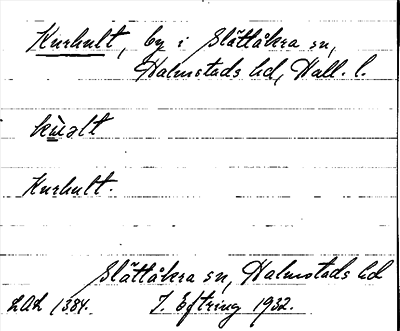 Kurhult, by i Slättåkra sn,
Halmstads hd, Hall. l.
kùəlt
Kurhult.
Slättåkra sn, Halmstads hd
LAL 1384. J. Eftring 1932.